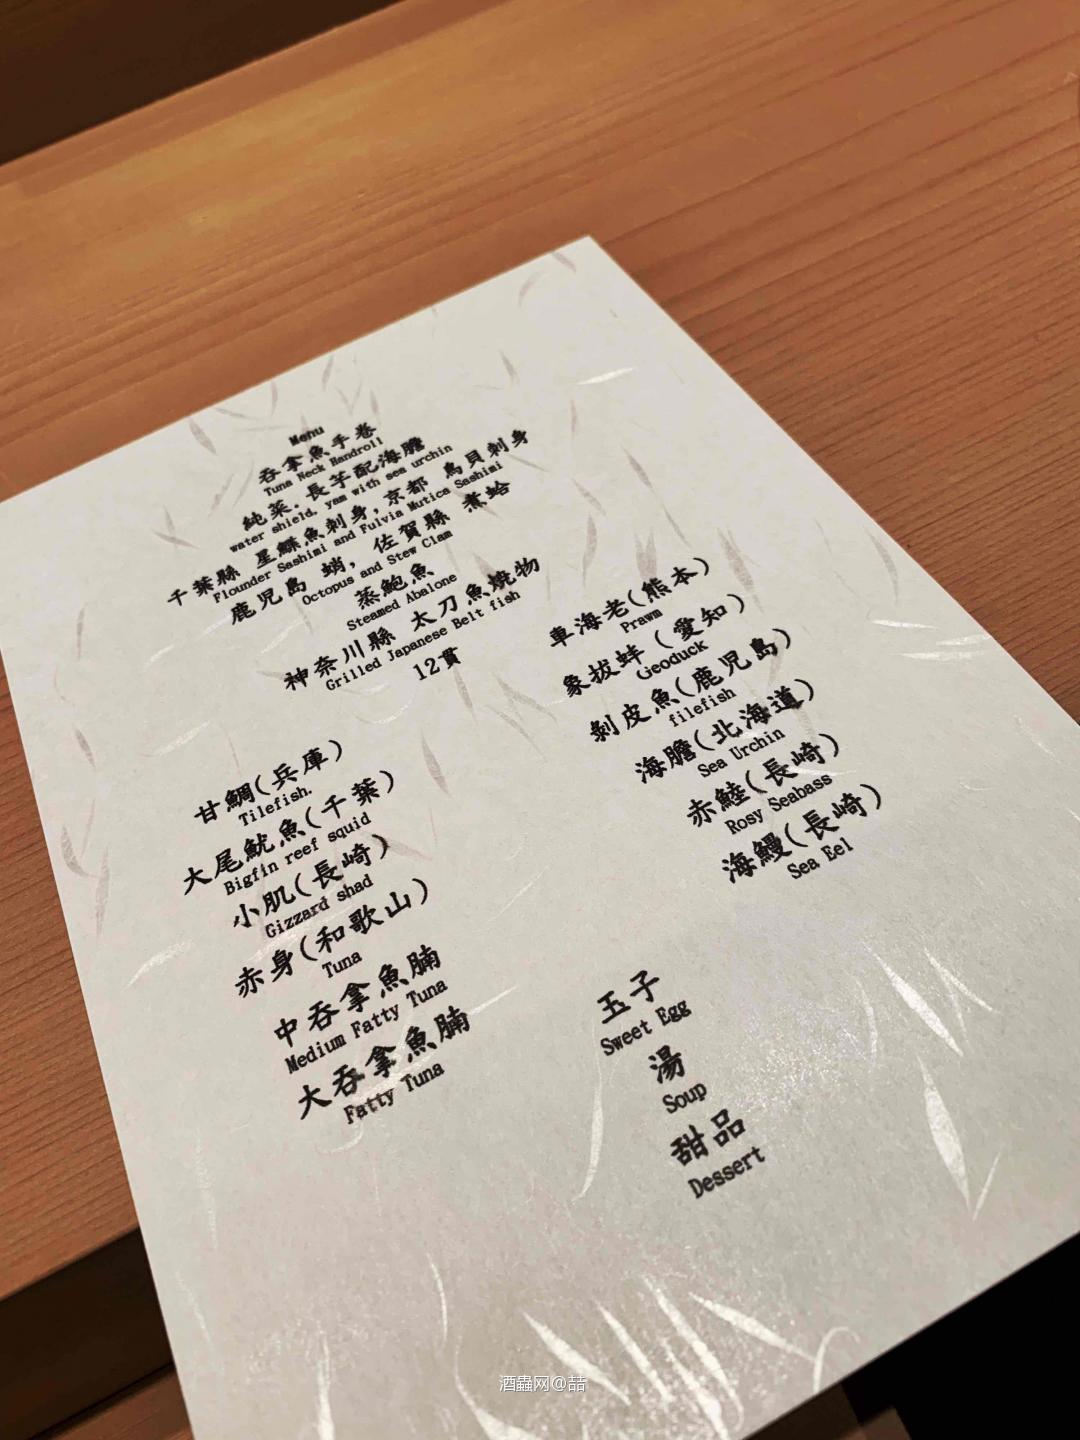 Menu
吞拿魚手卷
Tuna Neck Handroll
純菜．長芋配海膽
water shield. yam with sea urchin
千葉縣 星鰈魚刺身, 京都 鳥貝刺身
Flounder Sashimi and Fulvia Mutica Sashimi
鹿児島 蛸, 佐賀縣 煮蛤
Octopus and Stew Clam
蒸鮑魚
Steamed Abalone
神奈川縣 太刀魚燒物
Grilled Japanese Belt fish
12貫
甘鯛(兵庫)
Tilefish.
大尾魷魚(千葉)
Bigfin reef squid
小肌(長崎)
Gizzard shad
赤身(和歌山)
Tuna
中吞拿魚腩
Medium Fatty Tuna
大吞拿魚腩
Fatty Tuna
車海老(熊本)
Prawn
象拔蚌(愛知)
Geoduck
剝皮魚(鹿児島)
filefish
海膽(北海道)
Sea Urchin
赤鯥(長崎)
Rosy Seabass
海鰻(長崎)
Sea Eel
玉子
Sweet Egg
湯
Soup
甜品
Dessert
酒蟲网@喆